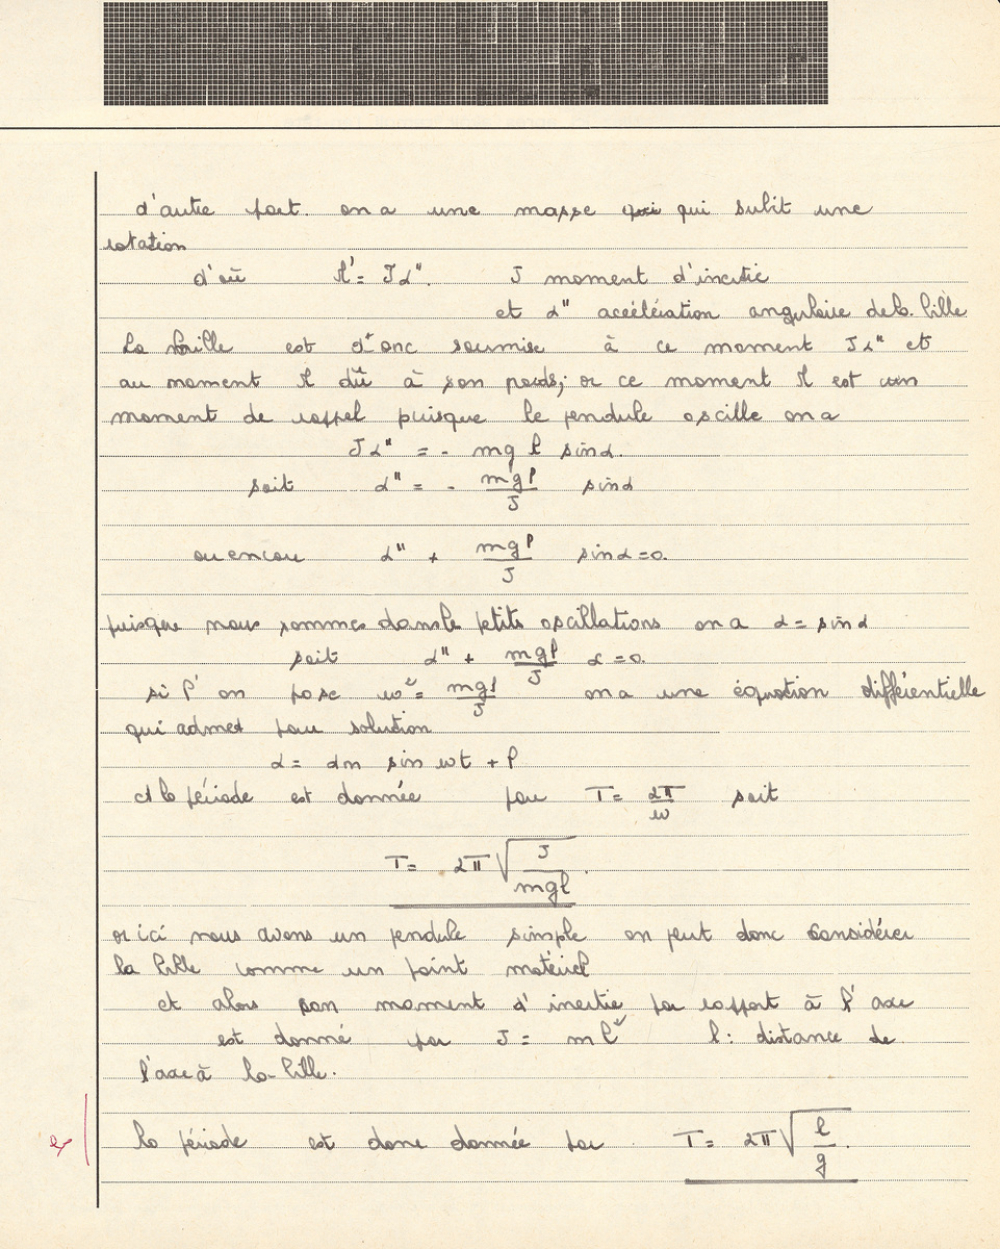 d'autre part. on a une masse qui qui subit une
rotation
d'où M' = Jα". J moment d'inertie
et α" accélération angulaire de la bille
La bille est donc soumise à ce moment Jα" et
au moment M dû à son poids; or ce moment M est un
moment de rappel puisque le pendule oscille on a
Jα" = - mg l sinα.
soit α" = - mgl/J sinα
ou encore α" + mgl/J sinα = 0.
puisque nous sommes dans le petits oscillations on a α = sinα
soit α" + mgl/J α = 0.
si l'on pose ω² = mgl/J on a une équation différientielle
qui admet pour solution
α = αm sin ωt + φ
et la période est donnée par T = 2π/ω soit
T = 2π√(J/mgl).
or ici nous avons un pendule simple on peut donc considérer
la bille comme un point matériel
et alors son moment d'inertie par rapport à l'axe
est donné par J = ml² l : distance de
l'axe à la bille.
la période est donc donnée par T = 2π√(l/g).